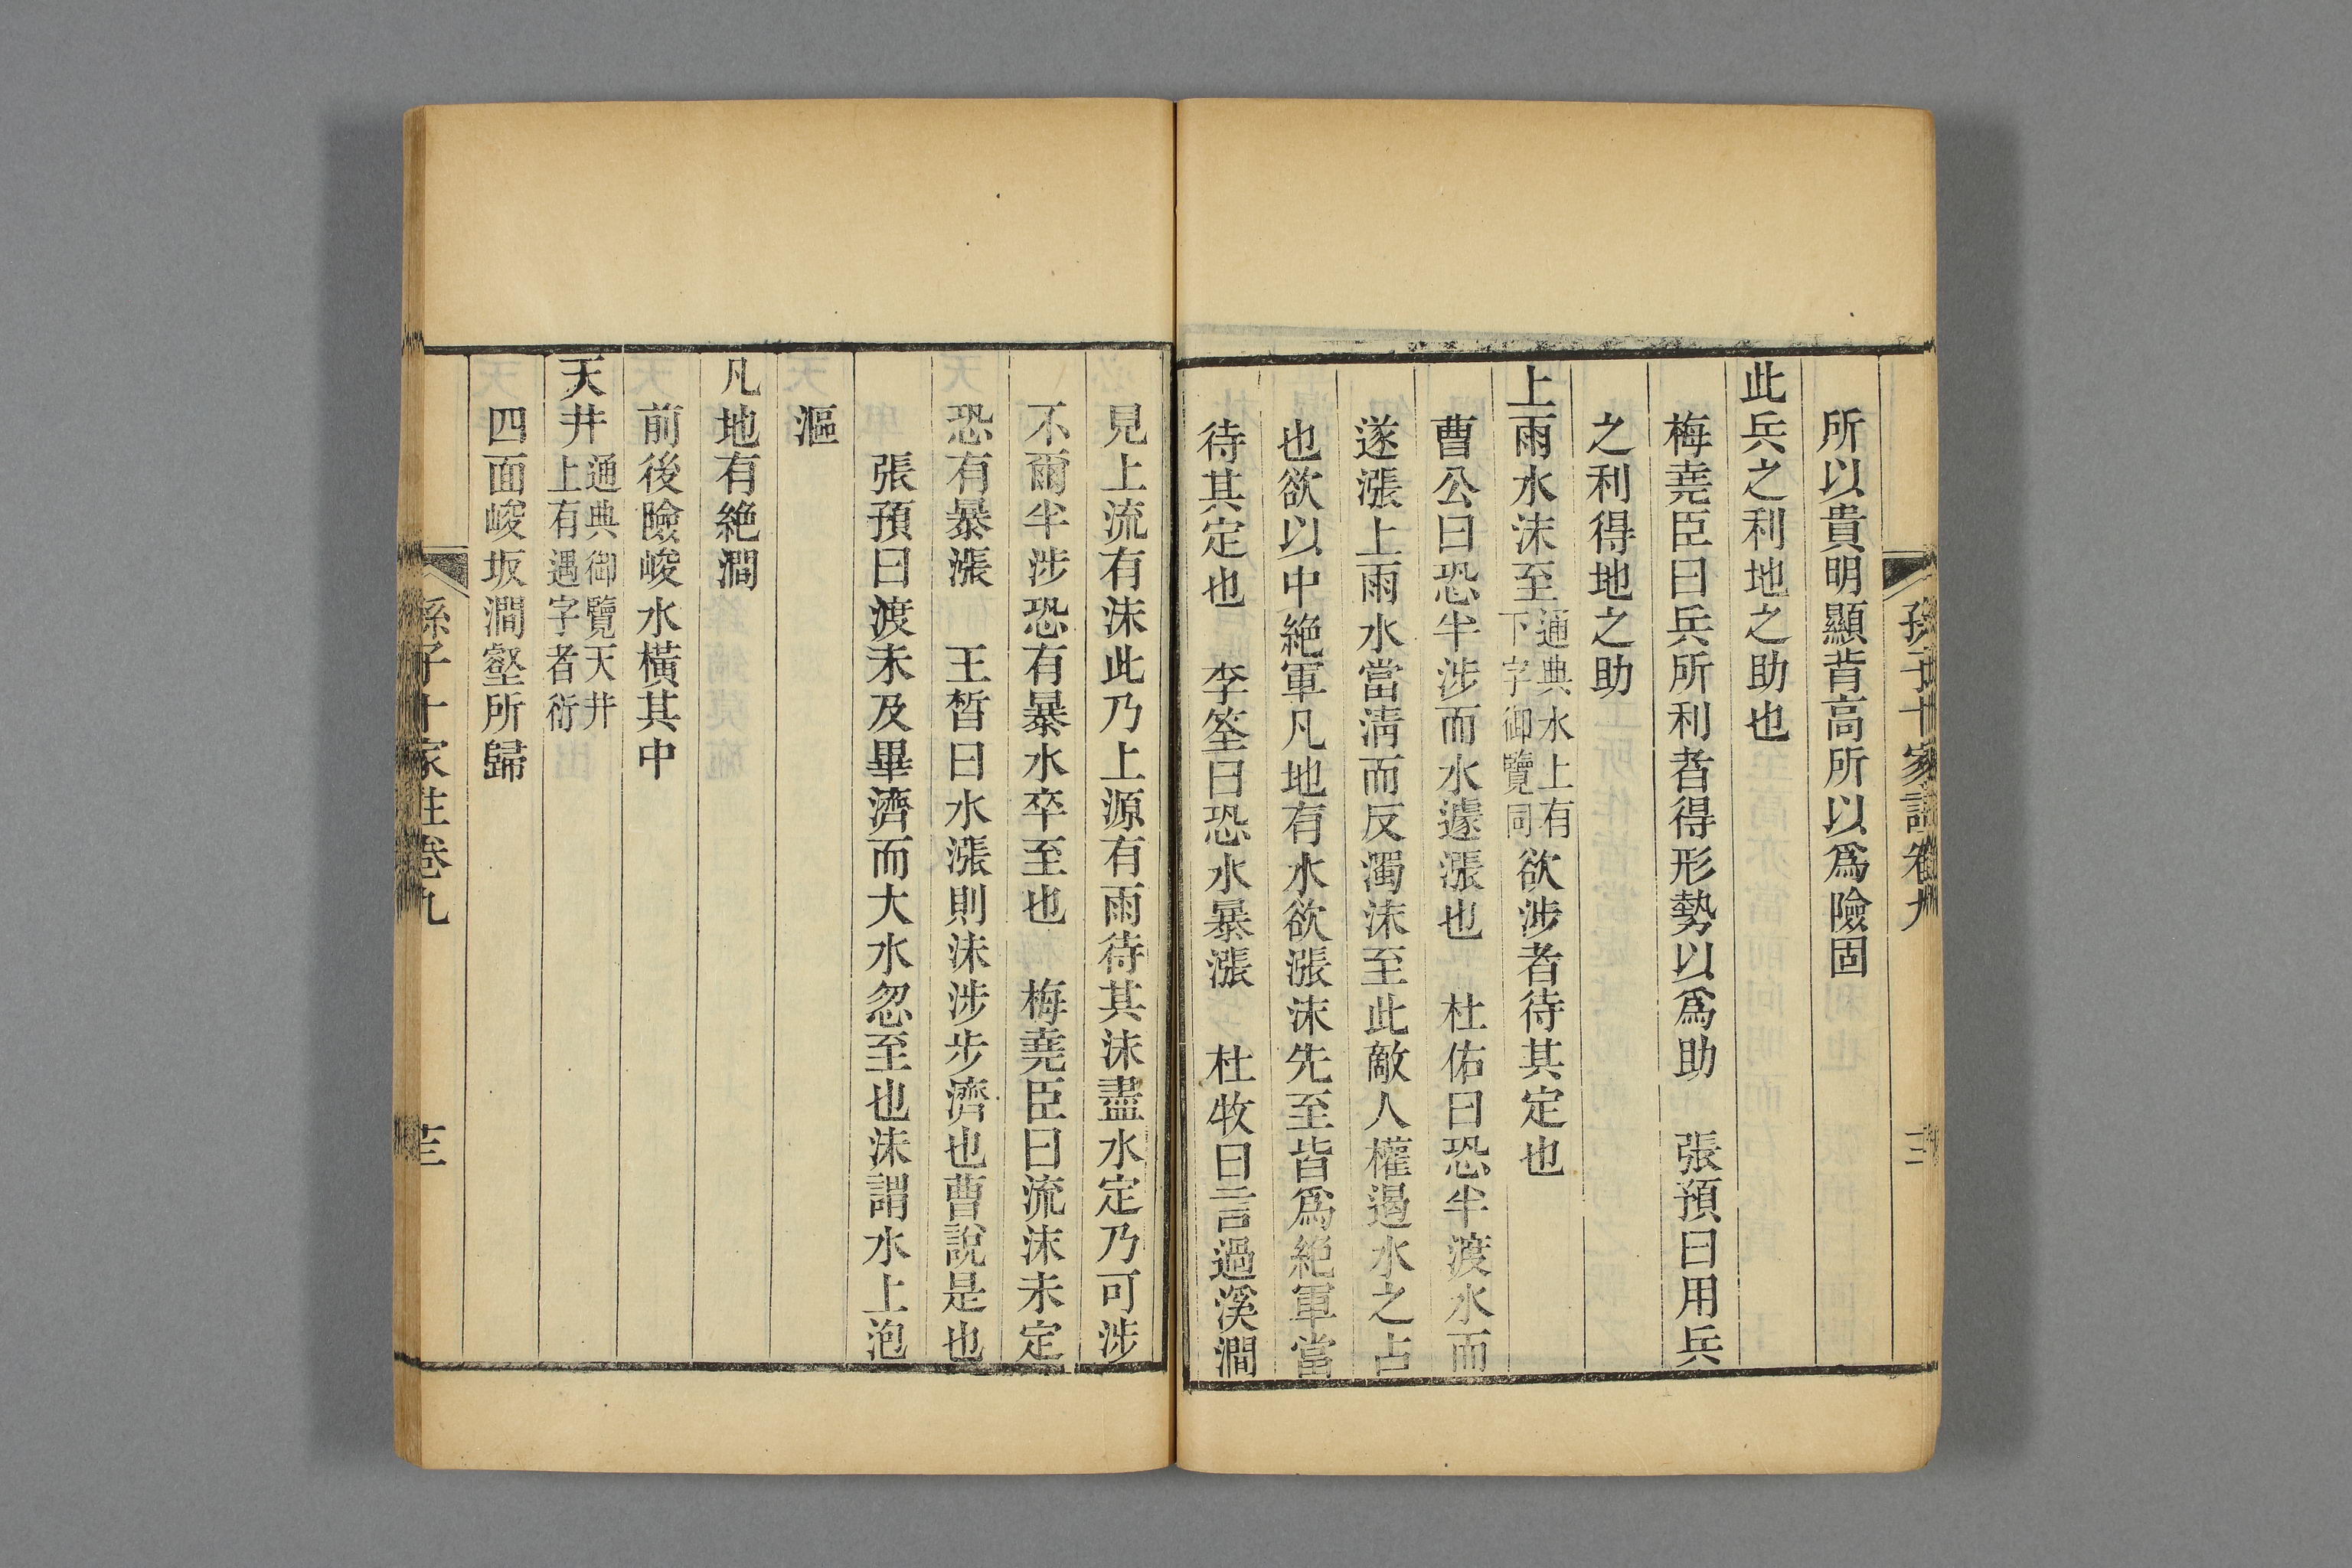 所以貴明顯背高所以爲險固
此兵之利地之助也
梅堯臣曰兵所利者得形勢以爲助　張預曰用兵
之利得地之助
上雨水沫至通典水上有下字御覽同欲涉者待其定也
曹公曰恐半涉而水遽漲也　杜佑曰恐半渡水而
遂漲上雨水當淸而反濁沫至此敵人權遏水之占
也欲以中絶軍凡地有水欲漲沫先至皆爲絶軍當
待其定也　李筌曰恐水暴漲　杜牧曰言過溪澗
見上流有沫此乃上源有雨待其沫盡水定乃可涉
不爾半涉恐有暴水卒至也　梅堯臣曰流沫未定
恐有暴漲　王晳曰水漲則沫涉步濟也曹說是也
張預曰渡未及畢濟而大水忽至也沫謂水上泡
漚
凡地有絶澗
前後險峻水橫其中
天井通典御覽天井上有遇字者衍
四面峻坂澗壑所歸
孫子十家註卷九